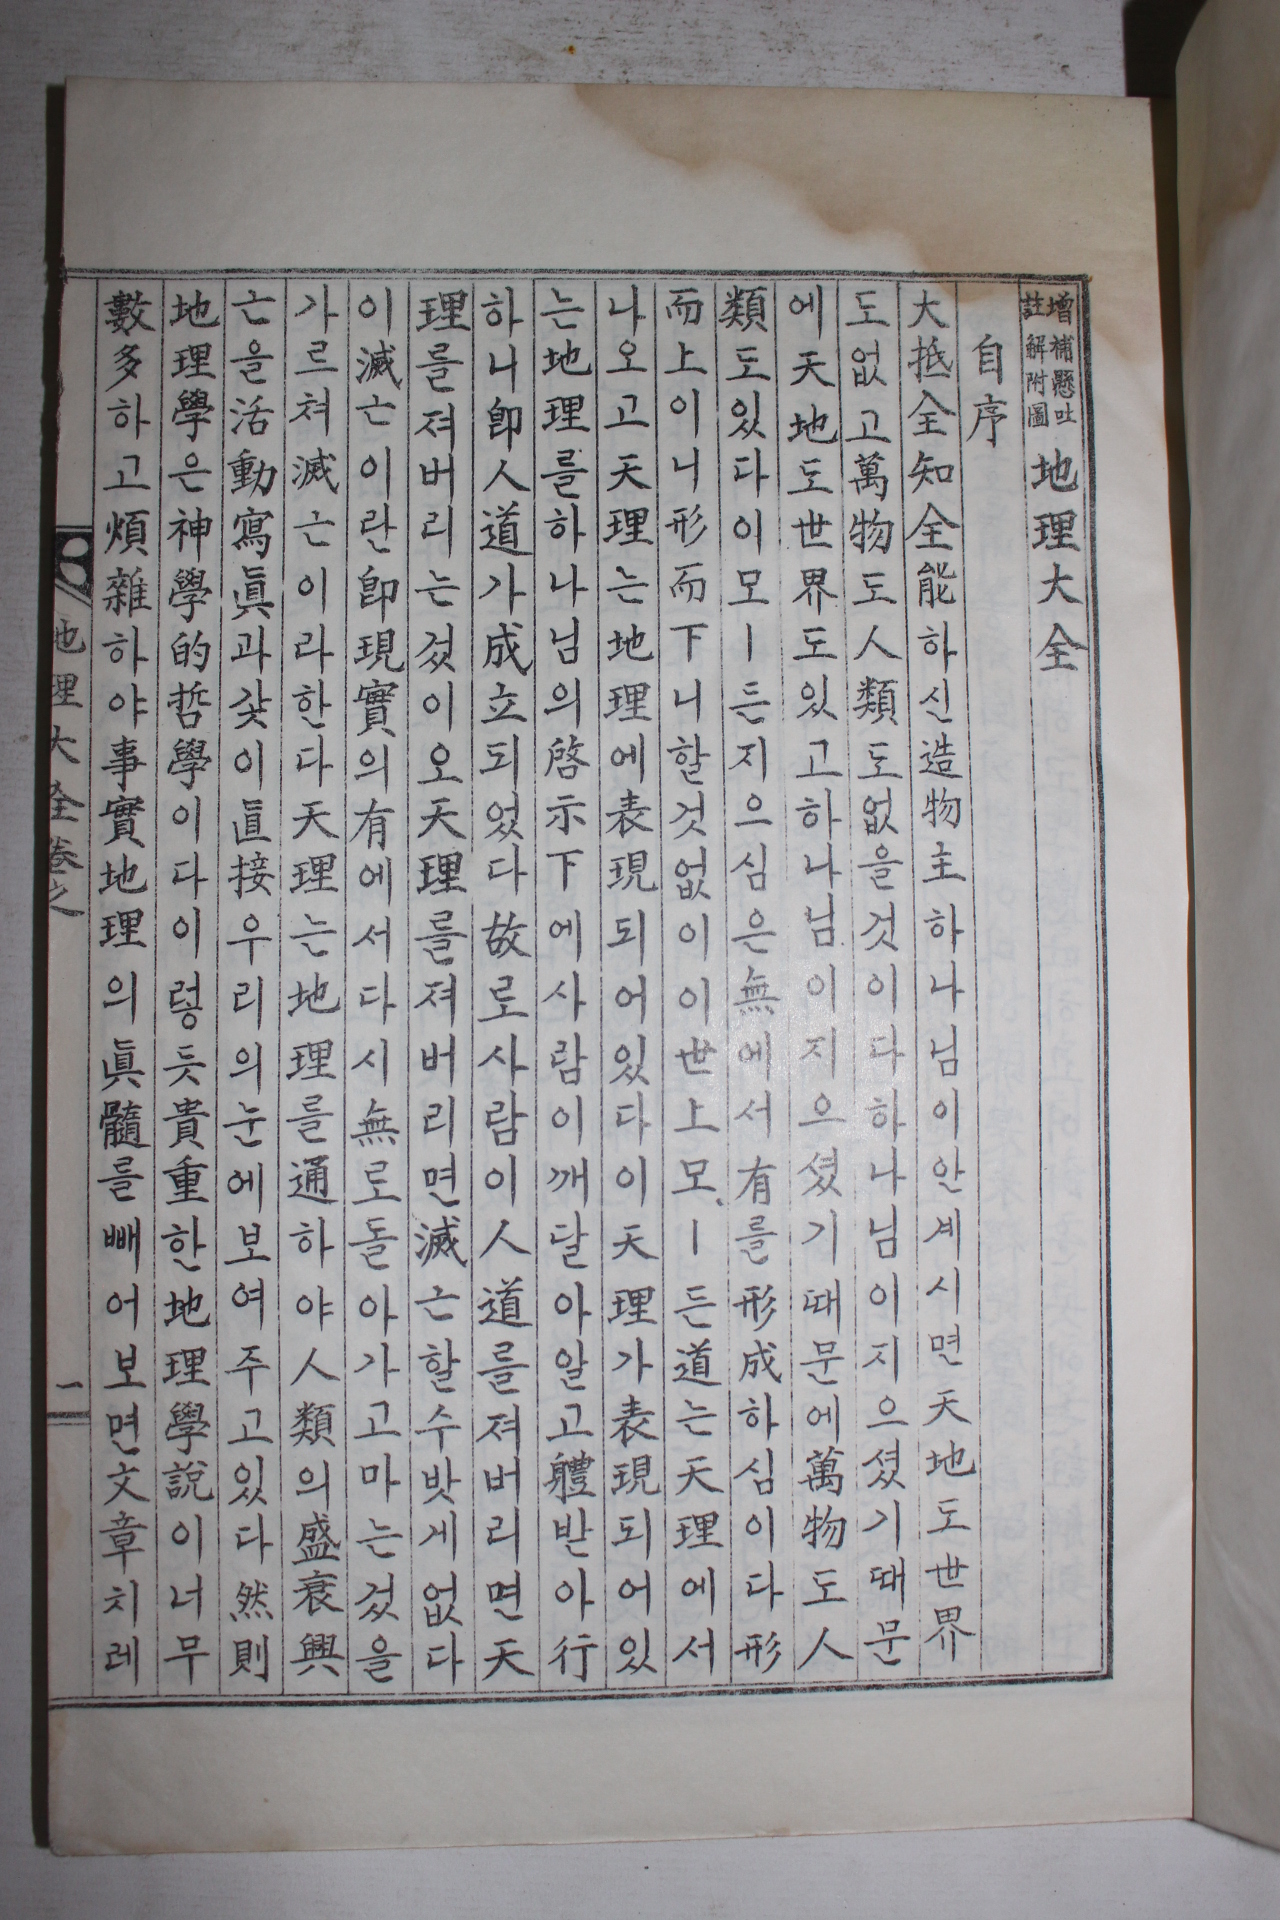 增補懸吐註解附圖 地理大全
自序
大抵全知全能하신造物主하나님이안계시면天地도世界
도없고萬物도人類도없을것이다하나님이지으셨기때문
에天地도世界도있고하나님이지으셨기때문에萬物도人
類도있다이모ㅣ든지으심은無에서有를形成하심이다形
而上이니形而下니할것없이이世上모ㅣ든道는天理에서
나오고天理는地理에表現되어있다이天理가表現되어있
는地理를하나님의啓示下에사람이깨달아알고軆받아行
하니卽人道가成立되었다故로사람이人道를져버리면天
理를져버리는겄이오天理를져버리면滅亡할수밧게없다
이滅亡이란卽現實의有에서다시無로돌아가고마는겄을
가르쳐滅亡이라한다天理는地理를通하야人類의盛衰興
亡을活動寫眞과갗이直接우리의눈에보여주고있다然則
地理學은神學的哲學이다이렇듯貴重한地理學說이너무
數多하고煩雜하야事實地理의眞髓를빼어보면文章치레
地理大全卷之 一